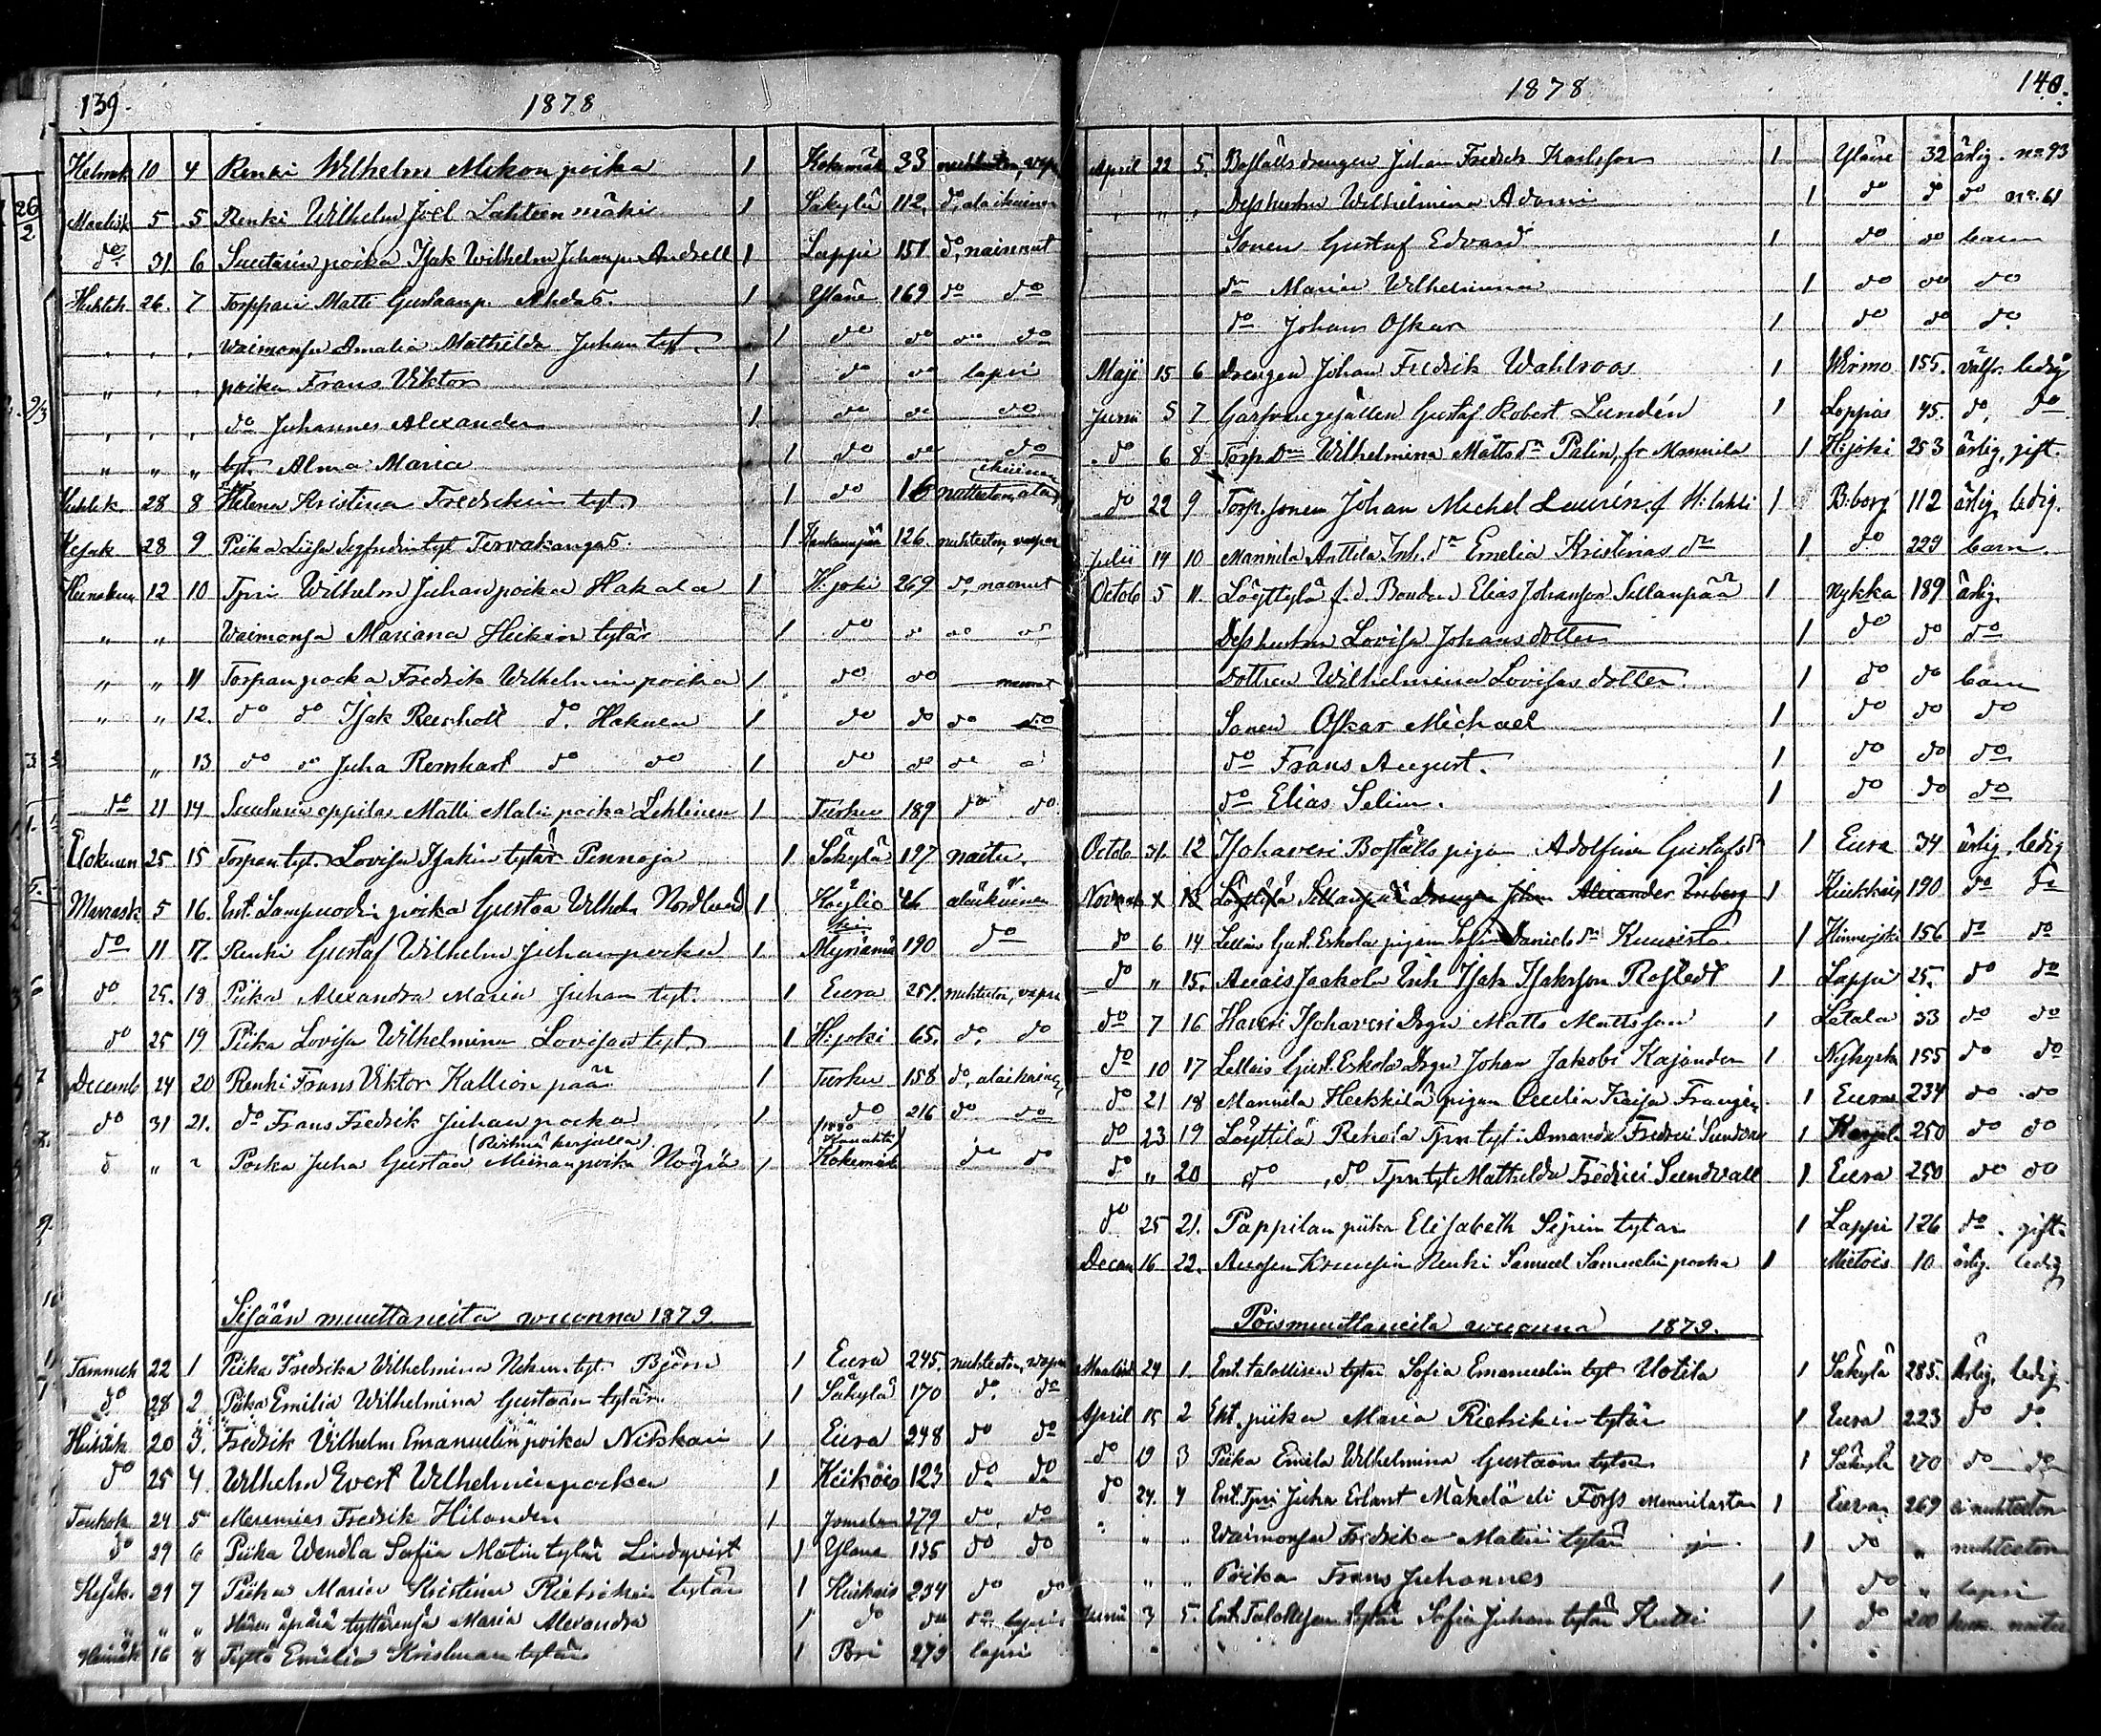 139.
1878
Helmik 10 4 Renki Wilhelm Mikon poika 1 Kokemäk 33 nuhteeton, vap
Maalisk 5 5 Renki Wilhelm Joel Lahteenmäki 1 Säkylä 112. do, alaikuinen
do 31 6 Suutarin poika Isak Wilhelm Juhanp. Andsell 1 Lappi 151 do, nainnut
Huhtik. 26. 7 Torppari Matti Gustaanp. Ahdas. 1 Yläne 169 do do
" " " waimonsa Amalia Mathilda Juhan tyt. 1 do do do do
" " " poika Frans Viktor 1 do do lapsi
" " " do Juhannes Alexander 1. do do do
" " " tyt. Alma Maria 1 do do do
Huhtik. 28 8 Helena Kristina Fredrikin tyt. 1 do 16 nuhteeton, alaikuinen
Kesäk 28 9 Piika Liisa Segfredin tyt Tervakangas 1 126. nuhteeton, vapaa
Heinäkuu 12 10 Tpri Wilhelm Juhanpoika Hakala 1 H:joki 269 do, nainut
" " Waimonsa Mariana Heikin tytär 1 do do do do
" " 11 Torpan poika Fredrik Wilhelmin poika 1 do do nainut
" " 12. do do Isak Reinholt do. Hakala 1 do do do do
" 13 do do Juha Reinhart do do 1 do do do do
do 21 14 Suutarin oppilas Matti Matin poika Lehtinen 1 Turku 189 do do
Elokuun 25 15 Torpan tyt. Lovisa Isakin tytär Pennoja 1 Säkylä 197 naitu.
Marrask 5 16. Ent. Lampuodin poika Gustaa Vilhelm Nordlund 1 Köyliö 46 alaikuinen
do 11 17. Renki Gustaf Wilhelm Juhanpoika 1. Mynämä 190 do
do. 25. 18 Piika Alexandra Maria Juhan tyt. 1 Eura 251. nuhteeton, vapaa
do 25 19 Piika Lovisa Wilhelmina Lovisan tyt. 1 H:joki 65. do. do
Decemb 24 20 Renki Frans Viktor Kallionpää 1 Turku 158 do, alaikuinen
do 31 21. do Frans Fredrik Juhanpoika 1 do 216 do do
(Ristinä kirjalla)
" Poika Juha Gustaa Miinanpoika Nööjä 1 Kokemäk do do
Sisään muuttaneita wuonna 1879.
Tammik 22 1 Piika Fredrika Wilhelmina tyt. Björn 1 Eura 245. nuhteeton, vapaa
do 28 2 Piika Emilia Wilhelmina Gustaan tytär 1 Säkylä 170 do. do
Huhtik 20 3. Fredrik Vilhelm Emanuelin poika Niskari 1 Eura 248 do do
do 25 4 Wilhelm Evert Wilhelmiinpoika 1 Kiikois 123 do do
Toukok 24 5 Merimies Fredrik Hilander 1 Jomala 279 do. do
do 29 6 Piika Wendla Sofia Matin tytär Lindqvist 1 Yläne 135 do do
Kesäk. 29 7 Piika Maria Kristina Rietrikin tytär 1 Kiukais 234 do do
" " " Hänen äpärä tyttärensä Maria Alexandra 1 do do do lapsi
Heinäk 16 8 Tyttö Emilia Kristiinan tytär 1 Pori 273 lapsi
140.
1878
April 22 5. Boställsdrengen Johan Fredrik Karlsson 1 Yläne 32 ärlig. no 93
" " " Dess hustru Wilhelmina Adami 1 do do do no. 61
Sonen Gustaf Edvard 1 do do barn
do Maria Wilhelmina 1 do do do
do Johans Oskar 1 do do do
Maji 15 6 Drengen Johan Fredrik Wahlroos 1 Wirmo 155. välfr. ledig
Junii 5 7 Garfvaregesällen Gustaf Robert Lundén 1 Loppis 45. do, do
do 6 8 Torp. Dn Wilhelmina Mattsdr Palin, fr Mannila 1 H:joki 253 ärlig, gift.
do 22 9 Torp. sonen Johan Michel Laurén, f H:lahti 1 B:borg 112 ärlig, ledig.
Julii 14 10 Mannila Anttila Inh. dr Emelia Kristinas dr 1 do 229 barn.
Octob 5 11. Löyttylä f.d. Bonden Elias Johansson Sillanpää 1 Nykka 189 ärlig.
Dess hustru Lovisa Johansdotter 1 do do do
Dottren Wilhelmina Lovisas dotter. 1 do do barn
Sonen Oskar Michael 1 do do do
do Frans August. 1 do do do
do Elias Selim. 1 do do do
Octob 31. 12 Isohaveri Boställs pigan Adolfina Gustafsdr 1 Eura 34 ärlig, ledig
Novemb 13 Löyttylä Sillanpää Drengen Johan Alexander Enberg 1 Kiukkais 190 do do
do 6 14 Lellais Gust. Eskola pigan Sofia Daniels dr Kuusisto 1 Hinnerjoki 156 do do
do " 15. Auvais Jaakola Enk Isak Isaksson Rostedt 1 Lappi 25. do do
do 7 16 Haveri Isohaveri Drgn Matts Mattsson 1 Letala 33 do do
do 10 17 Lellais Gust. Eskola Drgn Johan Jakobi Kajander 1 Nykyrk 155 do do
do 21 18 Mannila Heikkilä pigan Cecilia Kaisa Franzén 1 Eura 234 do do
do 23 19 Löyttilä Rekola Tpn tyt: Amanda Fredrici Sundvall 1 Karjal. 250 do do
do " 20 do , do Tpn tyt Mathilda Fredrici Sundvall 1 Eura 250 do do
do 25 21. Pappilan piika Elisabeth Sipin tytar 1 Lappi 126 do. gift.
Decem 16 22. Renki Samuel Samuelin poika 1 Mietois 10 ärlig. ledig
Poismuuttaneita wuonna 1879.
Maalisk 24 1. Ent. talollisen tytär Sofia Emanuelin tyt Uotila 1 Säkylä 285. Ärlig, ledig.
April 15 2 Ent. piika Maria Rietrikin tytär 1 Eura 223 do do.
do 19 3 Piika Emila Wilhelmina Gustaan tytär 1 Säkylä 170 do do
do 24. 4 Ent. Tpri Juha Erlant Mäkelä eli Forss Mannilasta 1 Eura 269 ei nuhteeton
" " " Waimonsa Fredrika Matin tytär 1 do " nuhteeton
" " Poika Frans Juhannes 1 do " lapsi
Junii 3 5. Ent. Talollisen tytär Sofia Juhan tytär Kutti 1 do 200 naitu